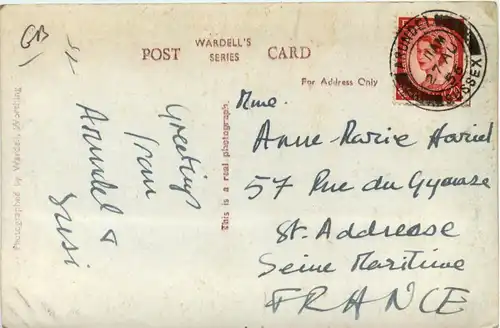 GB
POST WARDELL'S SERIES CARD
For Address Only
Greetings
from
Arundel &
Susi
This is a real photograph.
Photographed by Wardell, Worthing
ARUNDEL
11 AM
27 AU
56
SUSSEX
Mme.
Anne-Marie Hariel
57 Rue du Gymnase
St. Addresse
Seine Maritime
FRANCE